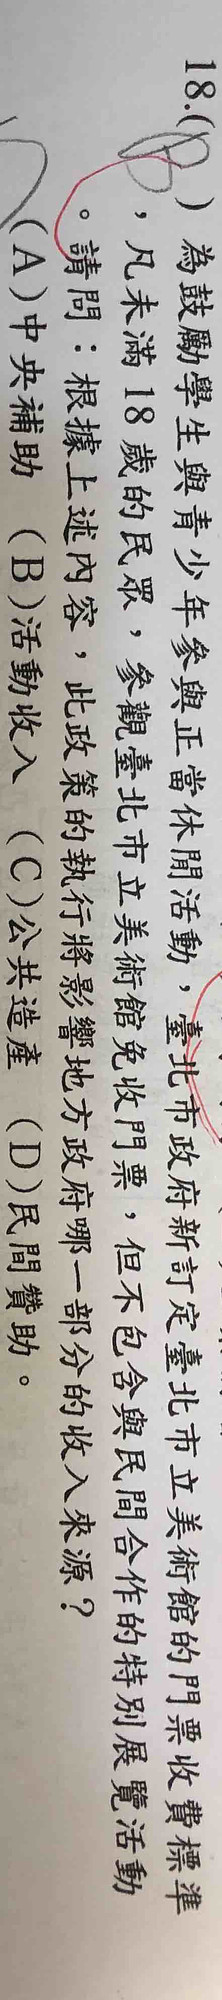 18.(B)為鼓勵學生與青少年參與正當休閒活動，臺北市政府新訂定臺北市立美術館的門票收費標準
，凡未滿 18 歲的民眾，參觀臺北市立美術館免收門票，但不包含與民間合作的特別展覽活動
。請問：根據上述內容，此政策的執行將影響地方政府哪一部分的收入來源？
(A)中央補助 (B)活動收入 (C)公共造產 (D)民間贊助。